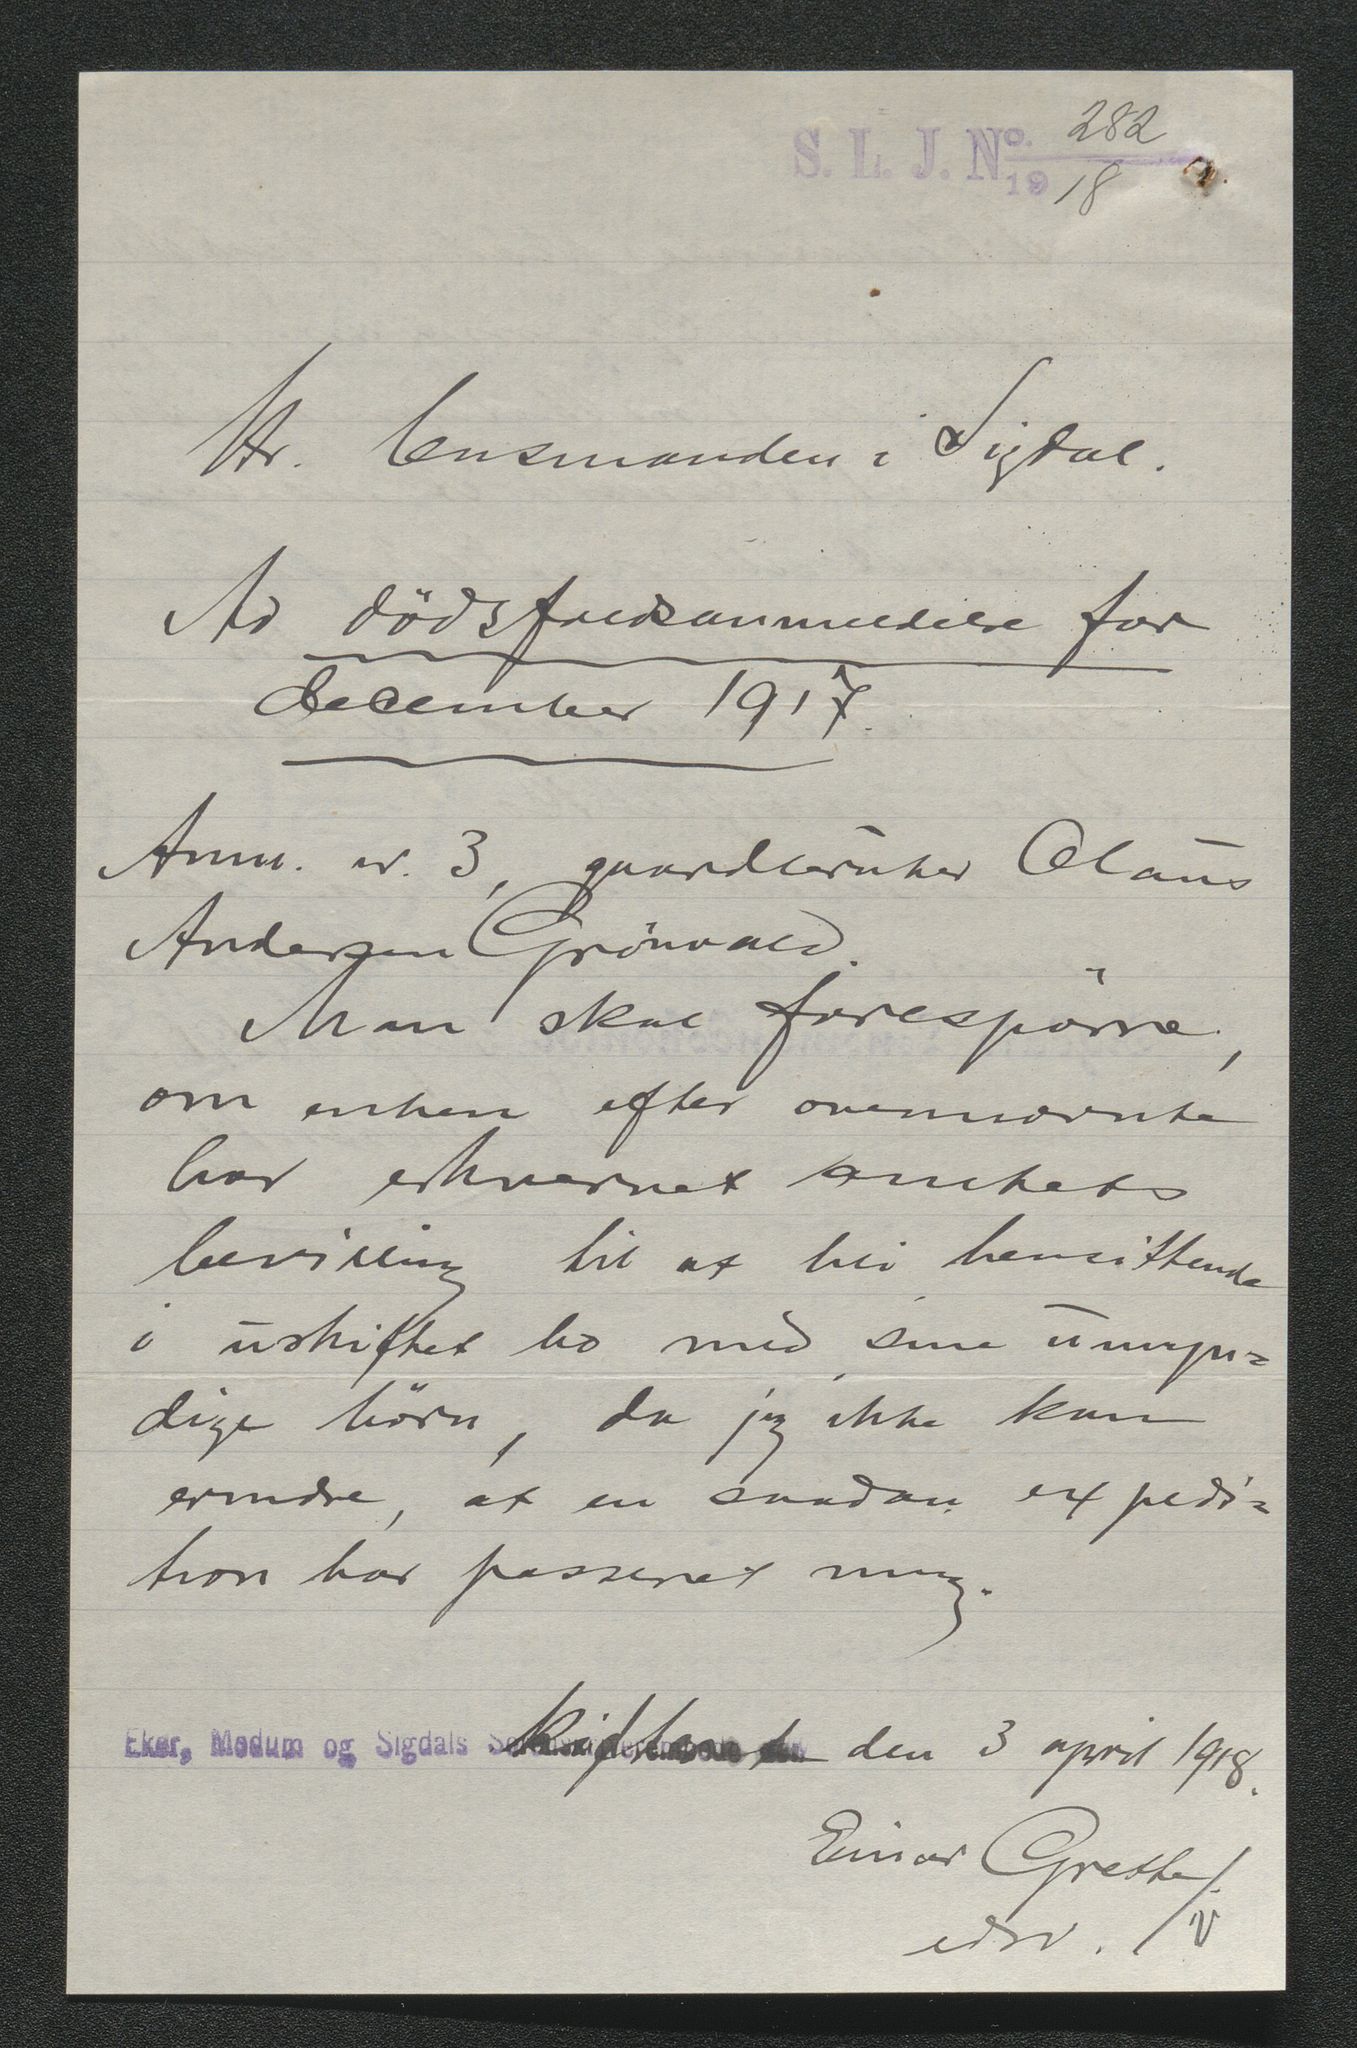 S. L. J. No. 282
19 18
Hr. lensmanden i Sigdal.
Ad dödsfaldsanmeldelse for
december 1917.
Anm. nr. 3, gaardbruker Olaus
Andersen Grönvold.
Man skal forespörre,
om enken efter ovennævnte
har erhvervet amtets
bevilling til at bli hensittende
i uskiftet bo med sine umyn=
dige börn, da jeg ikke kan
erindre, at en saadan expedi=
tion har passeret mig.
Eker, Modum og Sigdals Sorenskriverembede den
den 3 april 1918.
Einar Grette
edsv.